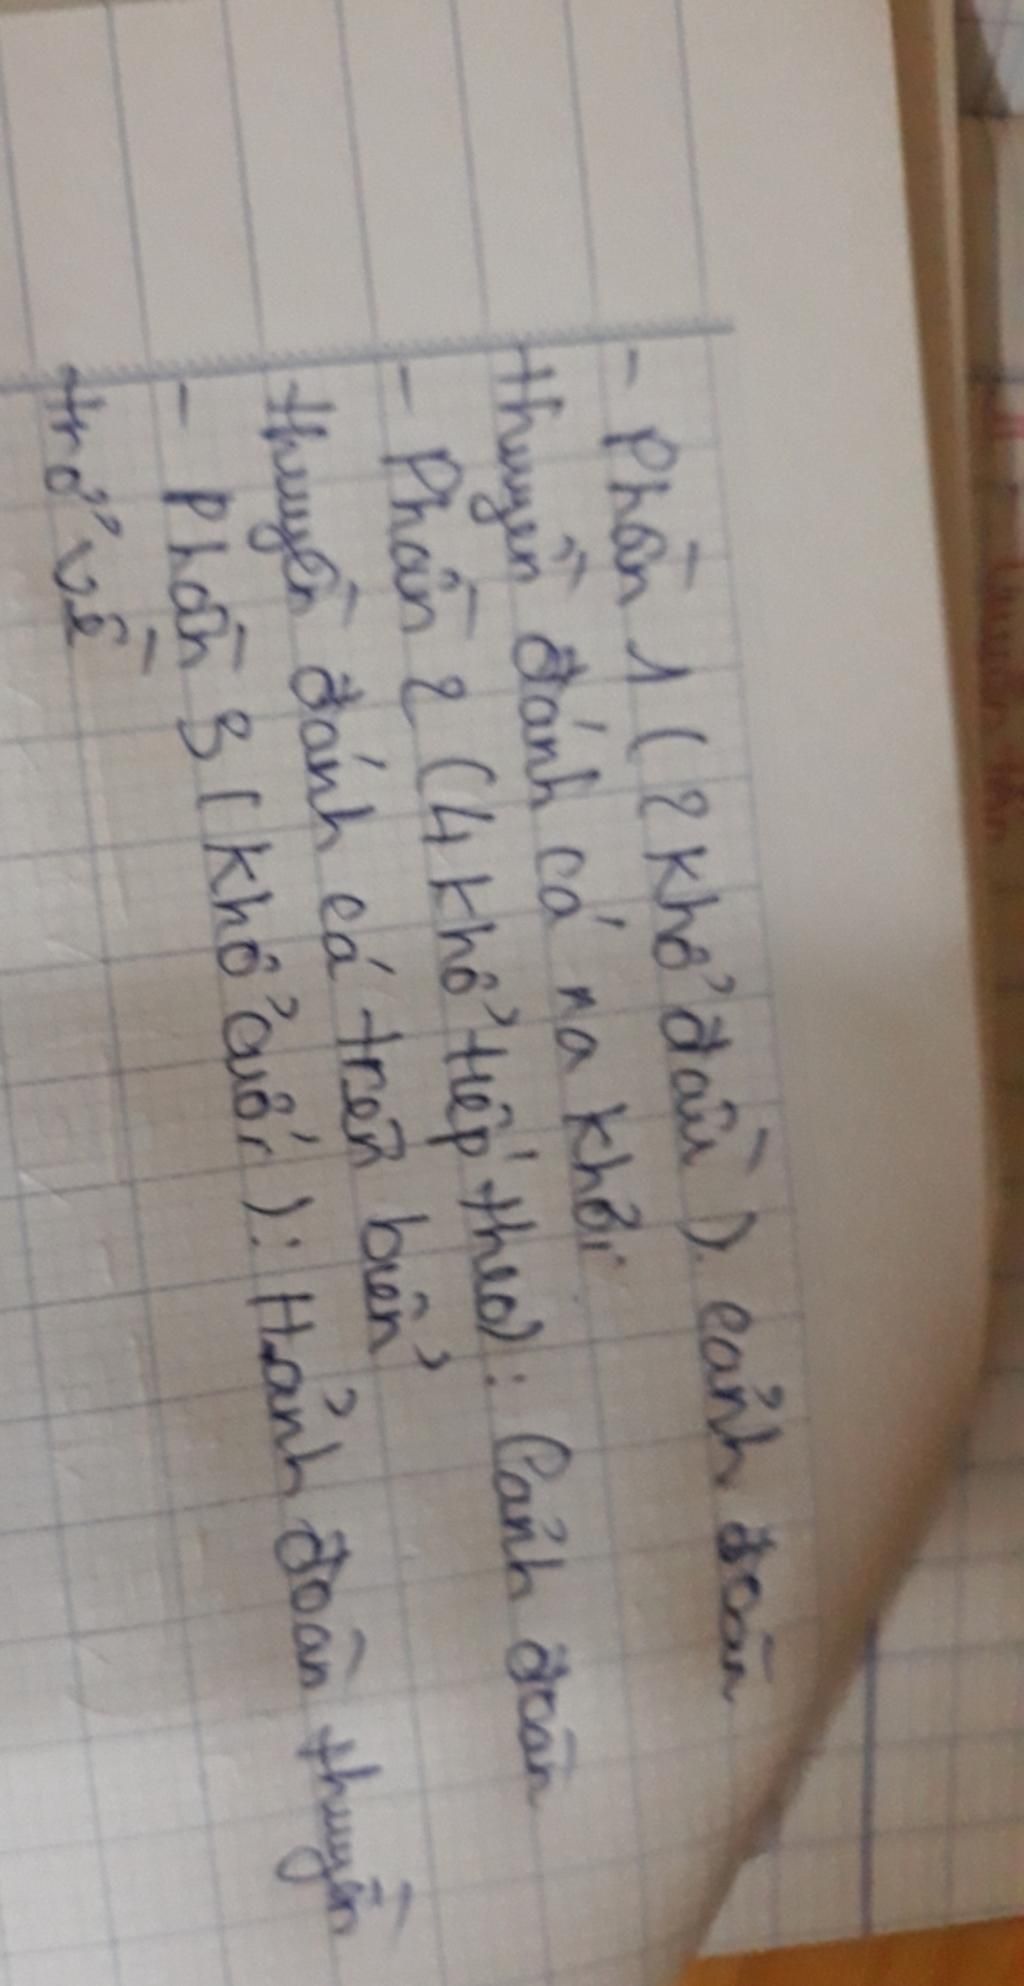 - Phần 1 (2 khổ đầu). cảnh đoàn
thuyền đánh cá ra khơi
- Phần 2 (4 khổ tiếp theo): Cảnh đoàn
thuyền đánh cá trên biển
- Phần 3 (khổ cuối): Hảnh đoàn thuyền
trở về